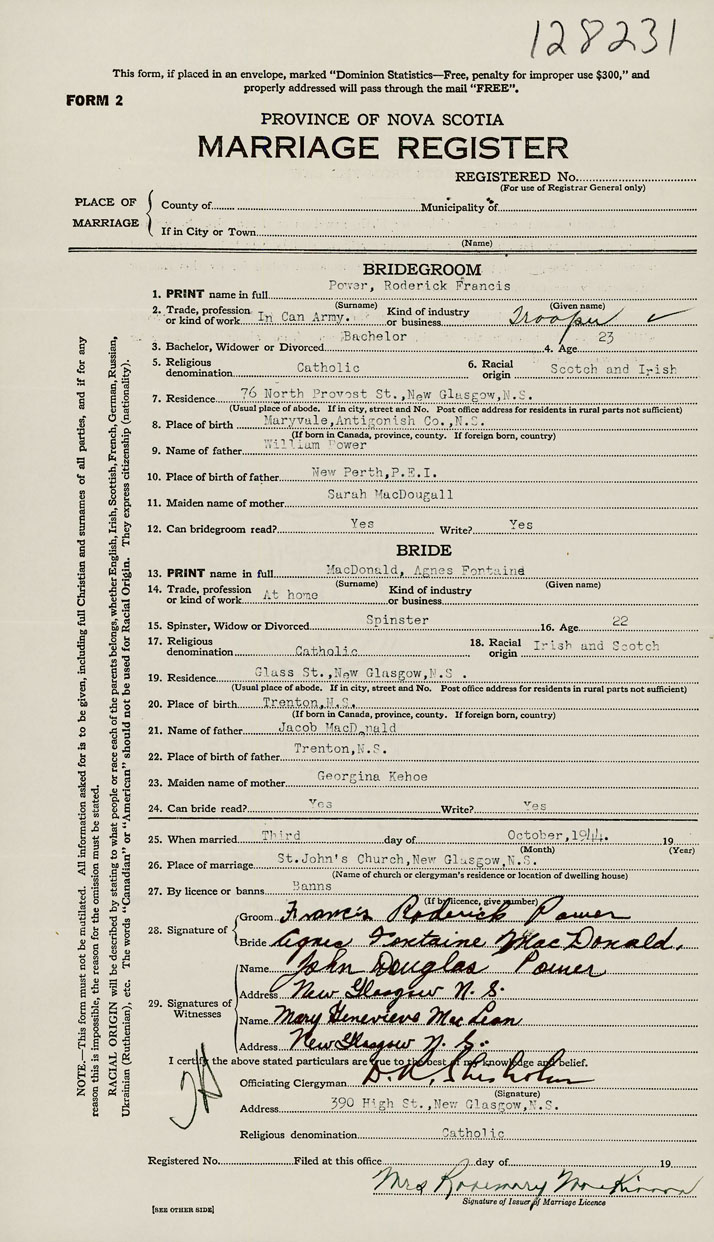 128231
This form, if placed in an envelope, marked "Dominion Statistics—Free, penalty for improper use $300," and
properly addressed will pass through the mail "FREE".
FORM 2
PROVINCE OF NOVA SCOTIA
MARRIAGE REGISTER
REGISTERED No.
(For use of Registrar General only)
PLACE OF MARRIAGE
County of Municipality of
If in City or Town
(Name)
BRIDEGROOM
1. PRINT name in full Power, Roderick Francis
(Surname) (Given name)
2. Trade, profession or kind of work In Can Army. Kind of industry or business Trooper
3. Bachelor, Widower or Divorced Bachelor 4. Age 23
5. Religious denomination Catholic 6. Racial origin Scotch and Irish
7. Residence 76 North Provost St.,New Glasgow,N.S.
(Usual place of abode. If in city, street and No. Post office address for residents in rural parts not sufficient)
8. Place of birth Maryvale,Antigonish Co.,N.S.
(If born in Canada, province, county. If foreign born, country)
9. Name of father William Power
10. Place of birth of father New Perth,P.E.I.
11. Maiden name of mother Sarah MacDougall
12. Can bridegroom read? Yes Write? Yes
BRIDE
13. PRINT name in full MacDonald, Agnes Fontaine
(Surname) (Given name)
14. Trade, profession or kind of work At home Kind of industry or business
15. Spinster, Widow or Divorced Spinster 16. Age 22
17. Religious denomination Catholic 18. Racial origin Irish and Scotch
19. Residence Glass St.,New Glasgow,N.S.
(Usual place of abode. If in city, street and No. Post office address for residents in rural parts not sufficient)
20. Place of birth Trenton,N.S.
(If born in Canada, province, county. If foreign born, country)
21. Name of father Jacob MacDonald
22. Place of birth of father Trenton,N.S.
23. Maiden name of mother Georgina Kehoe
24. Can bride read? Yes Write? Yes
25. When married Third day of October,1944. 19
(Month) (Year)
26. Place of marriage St.John's Church,New Glasgow,N.S.
(Name of church or clergyman's residence or location of dwelling house)
27. By licence or banns Banns
(If by licence, give number)
28. Signature of
Groom Francis Roderick Power
Bride Agnes Fontaine MacDonald.
29. Signatures of Witnesses
Name John Douglas Power
Address New Glasgow N.S.
Name Mary Genevieve MacLean
Address New Glasgow N.S.
I certify the above stated particulars are true to the best of my knowledge and belief.
Officiating Clergyman D.R. Chisholm
(Signature)
Address 390 High St.,New Glasgow,N.S.
Religious denomination Catholic
Registered No. Filed at this office day of 19
Mrs Rosemary
Signature of Issuer of Marriage Licence
[SEE OTHER SIDE]
NOTE.—This form must not be mutilated. All information asked for is to be given, including full Christian and surnames of all parties, and if for any
reason this is impossible, the reason for the omission must be stated.
RACIAL ORIGIN will be described by stating to what people or race each of the parents belongs, whether English, Irish, Scottish, French, German, Russian,
Ukrainian (Ruthenian), etc. The words "Canadian" or "American" should not be used for Racial Origin. They express citizenship (nationality).